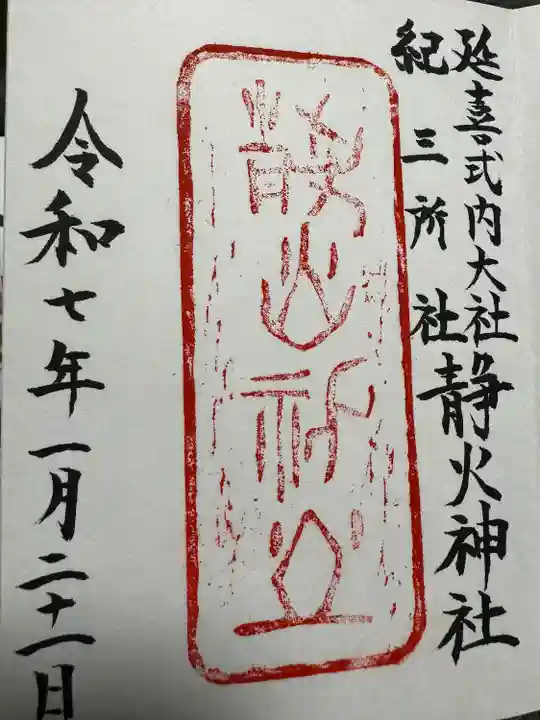 延喜式内大社静火神社
紀三所社
静火神社
令和七年一月二十一日